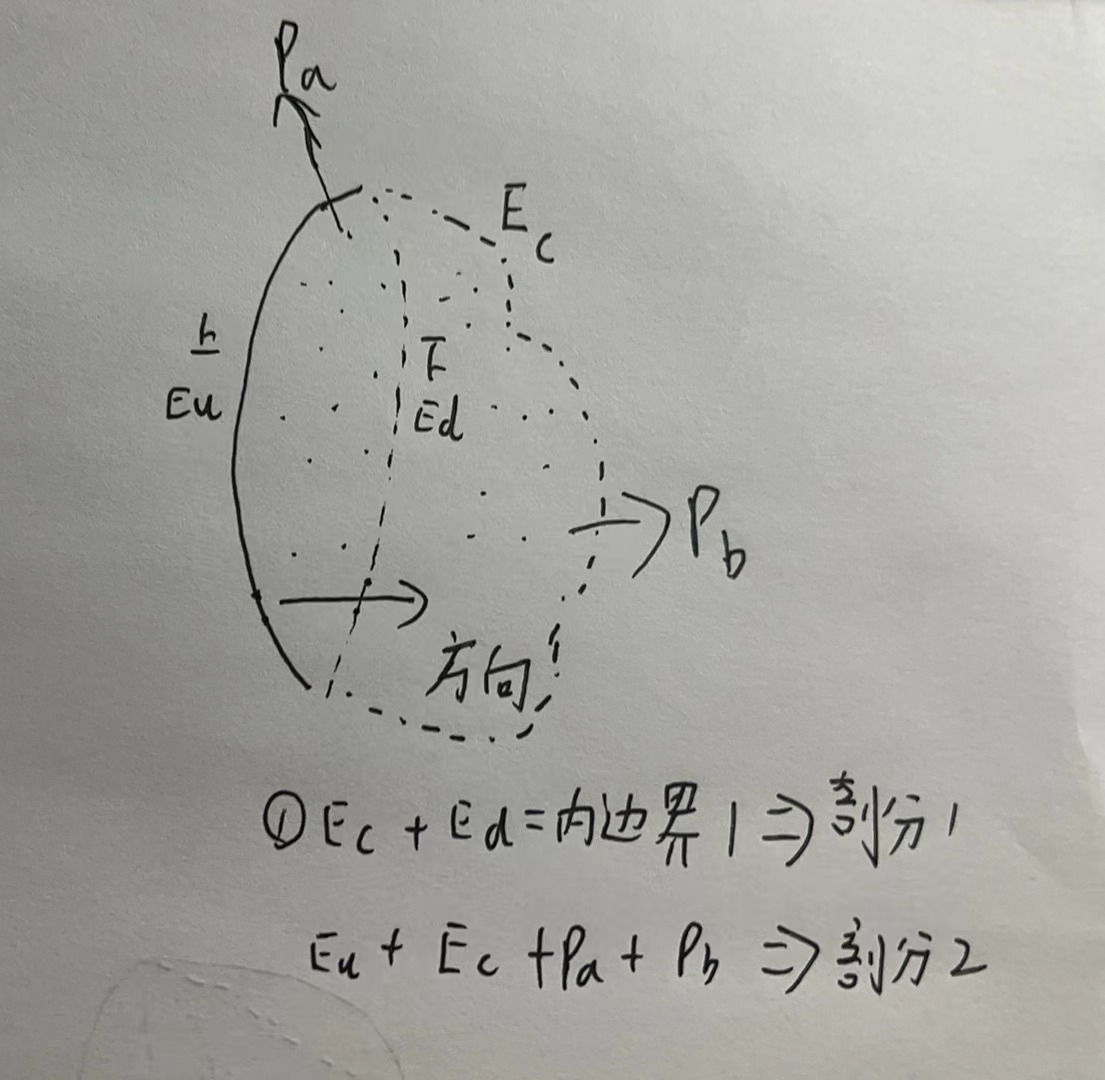 Pa
Ec
上
Eu
下
Ed
Pb
方向
① Ec + Ed = 内边界1 ⇒ 剖分1
Eu + Ec + Pa + Pb ⇒ 剖分2